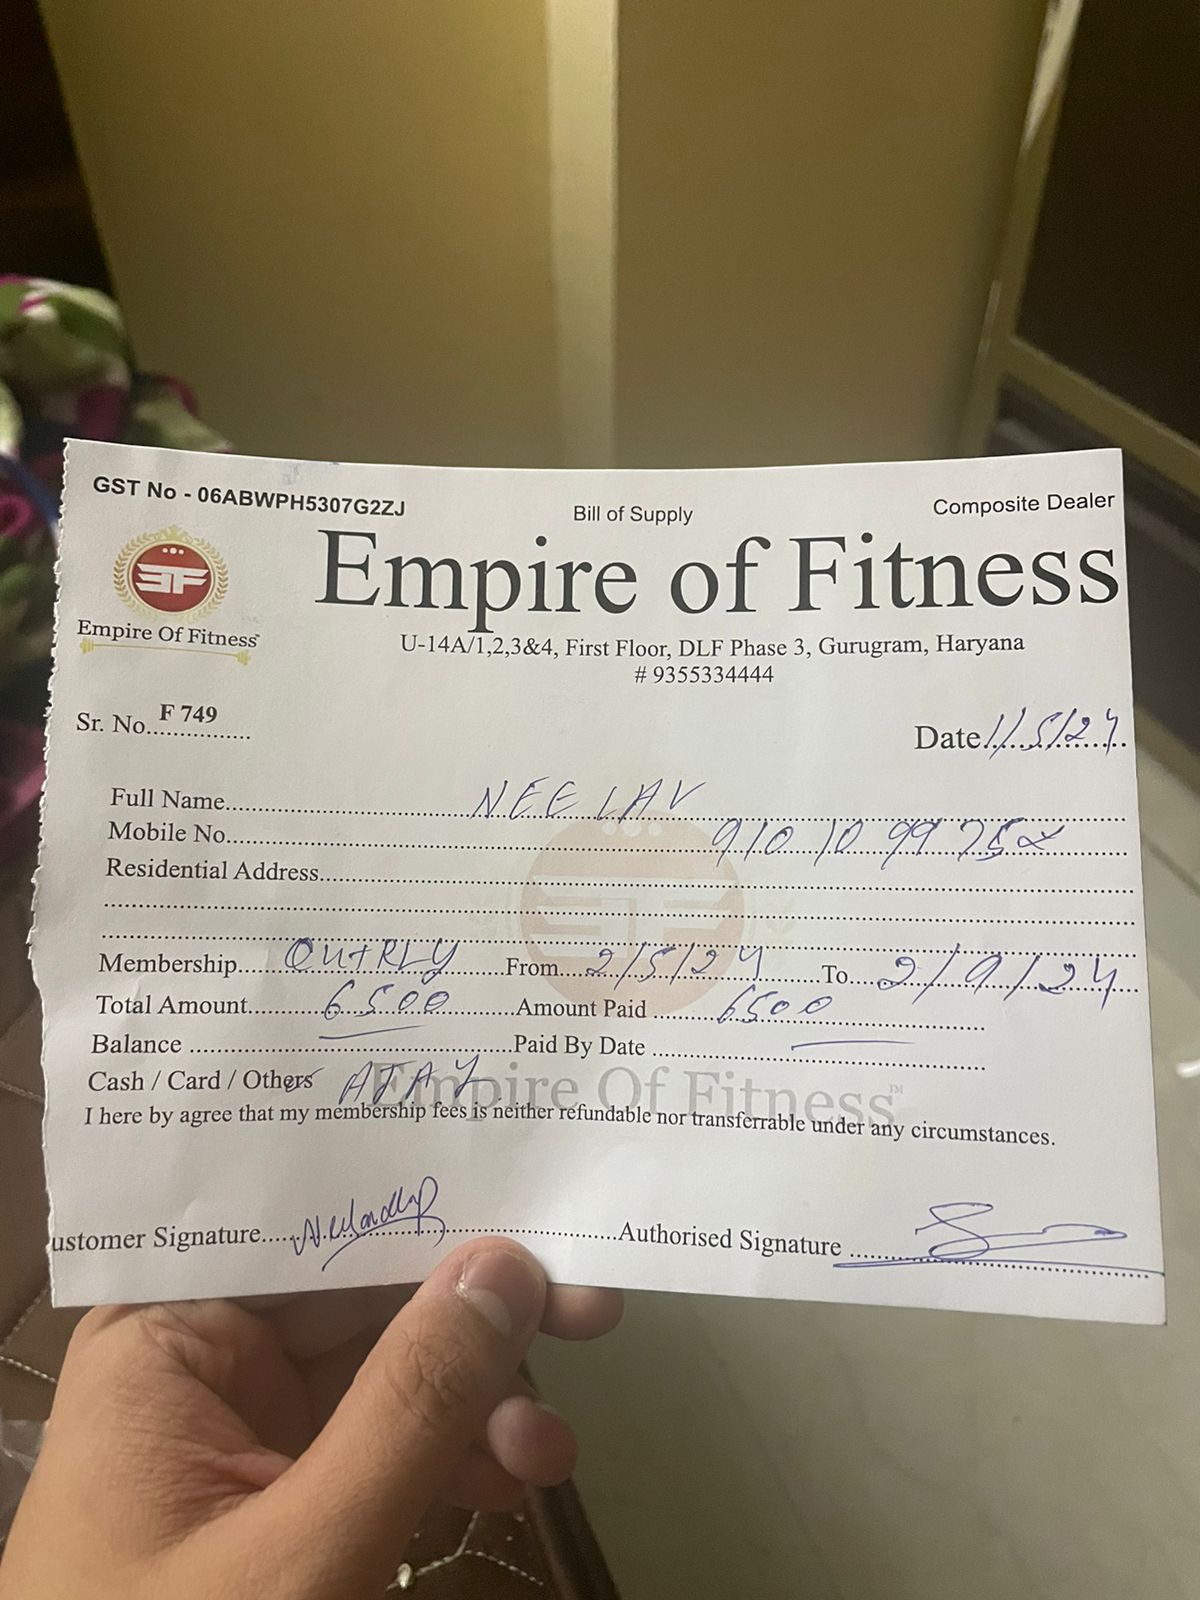 GST No - 06ABWPH5307G2ZJ
Bill of Supply
Composite Dealer
EF
Empire Of Fitness
Empire of Fitness
U-14A/1,2,3&4, First Floor, DLF Phase 3, Gurugram, Haryana
# 9355334444
Sr. No. F 749
Date 1/5/24
Full Name NEELAV
Mobile No. 910 10 99 75
Residential Address
Membership QUTRLY From 2/5/24 To 2/9/24
Total Amount 6500 Amount Paid 6500
Balance Paid By Date
Cash / Card / Others AJAY
Empire Of Fitness™
I here by agree that my membership fees is neither refundable nor transferrable under any circumstances.
ustomer Signature Authorised Signature